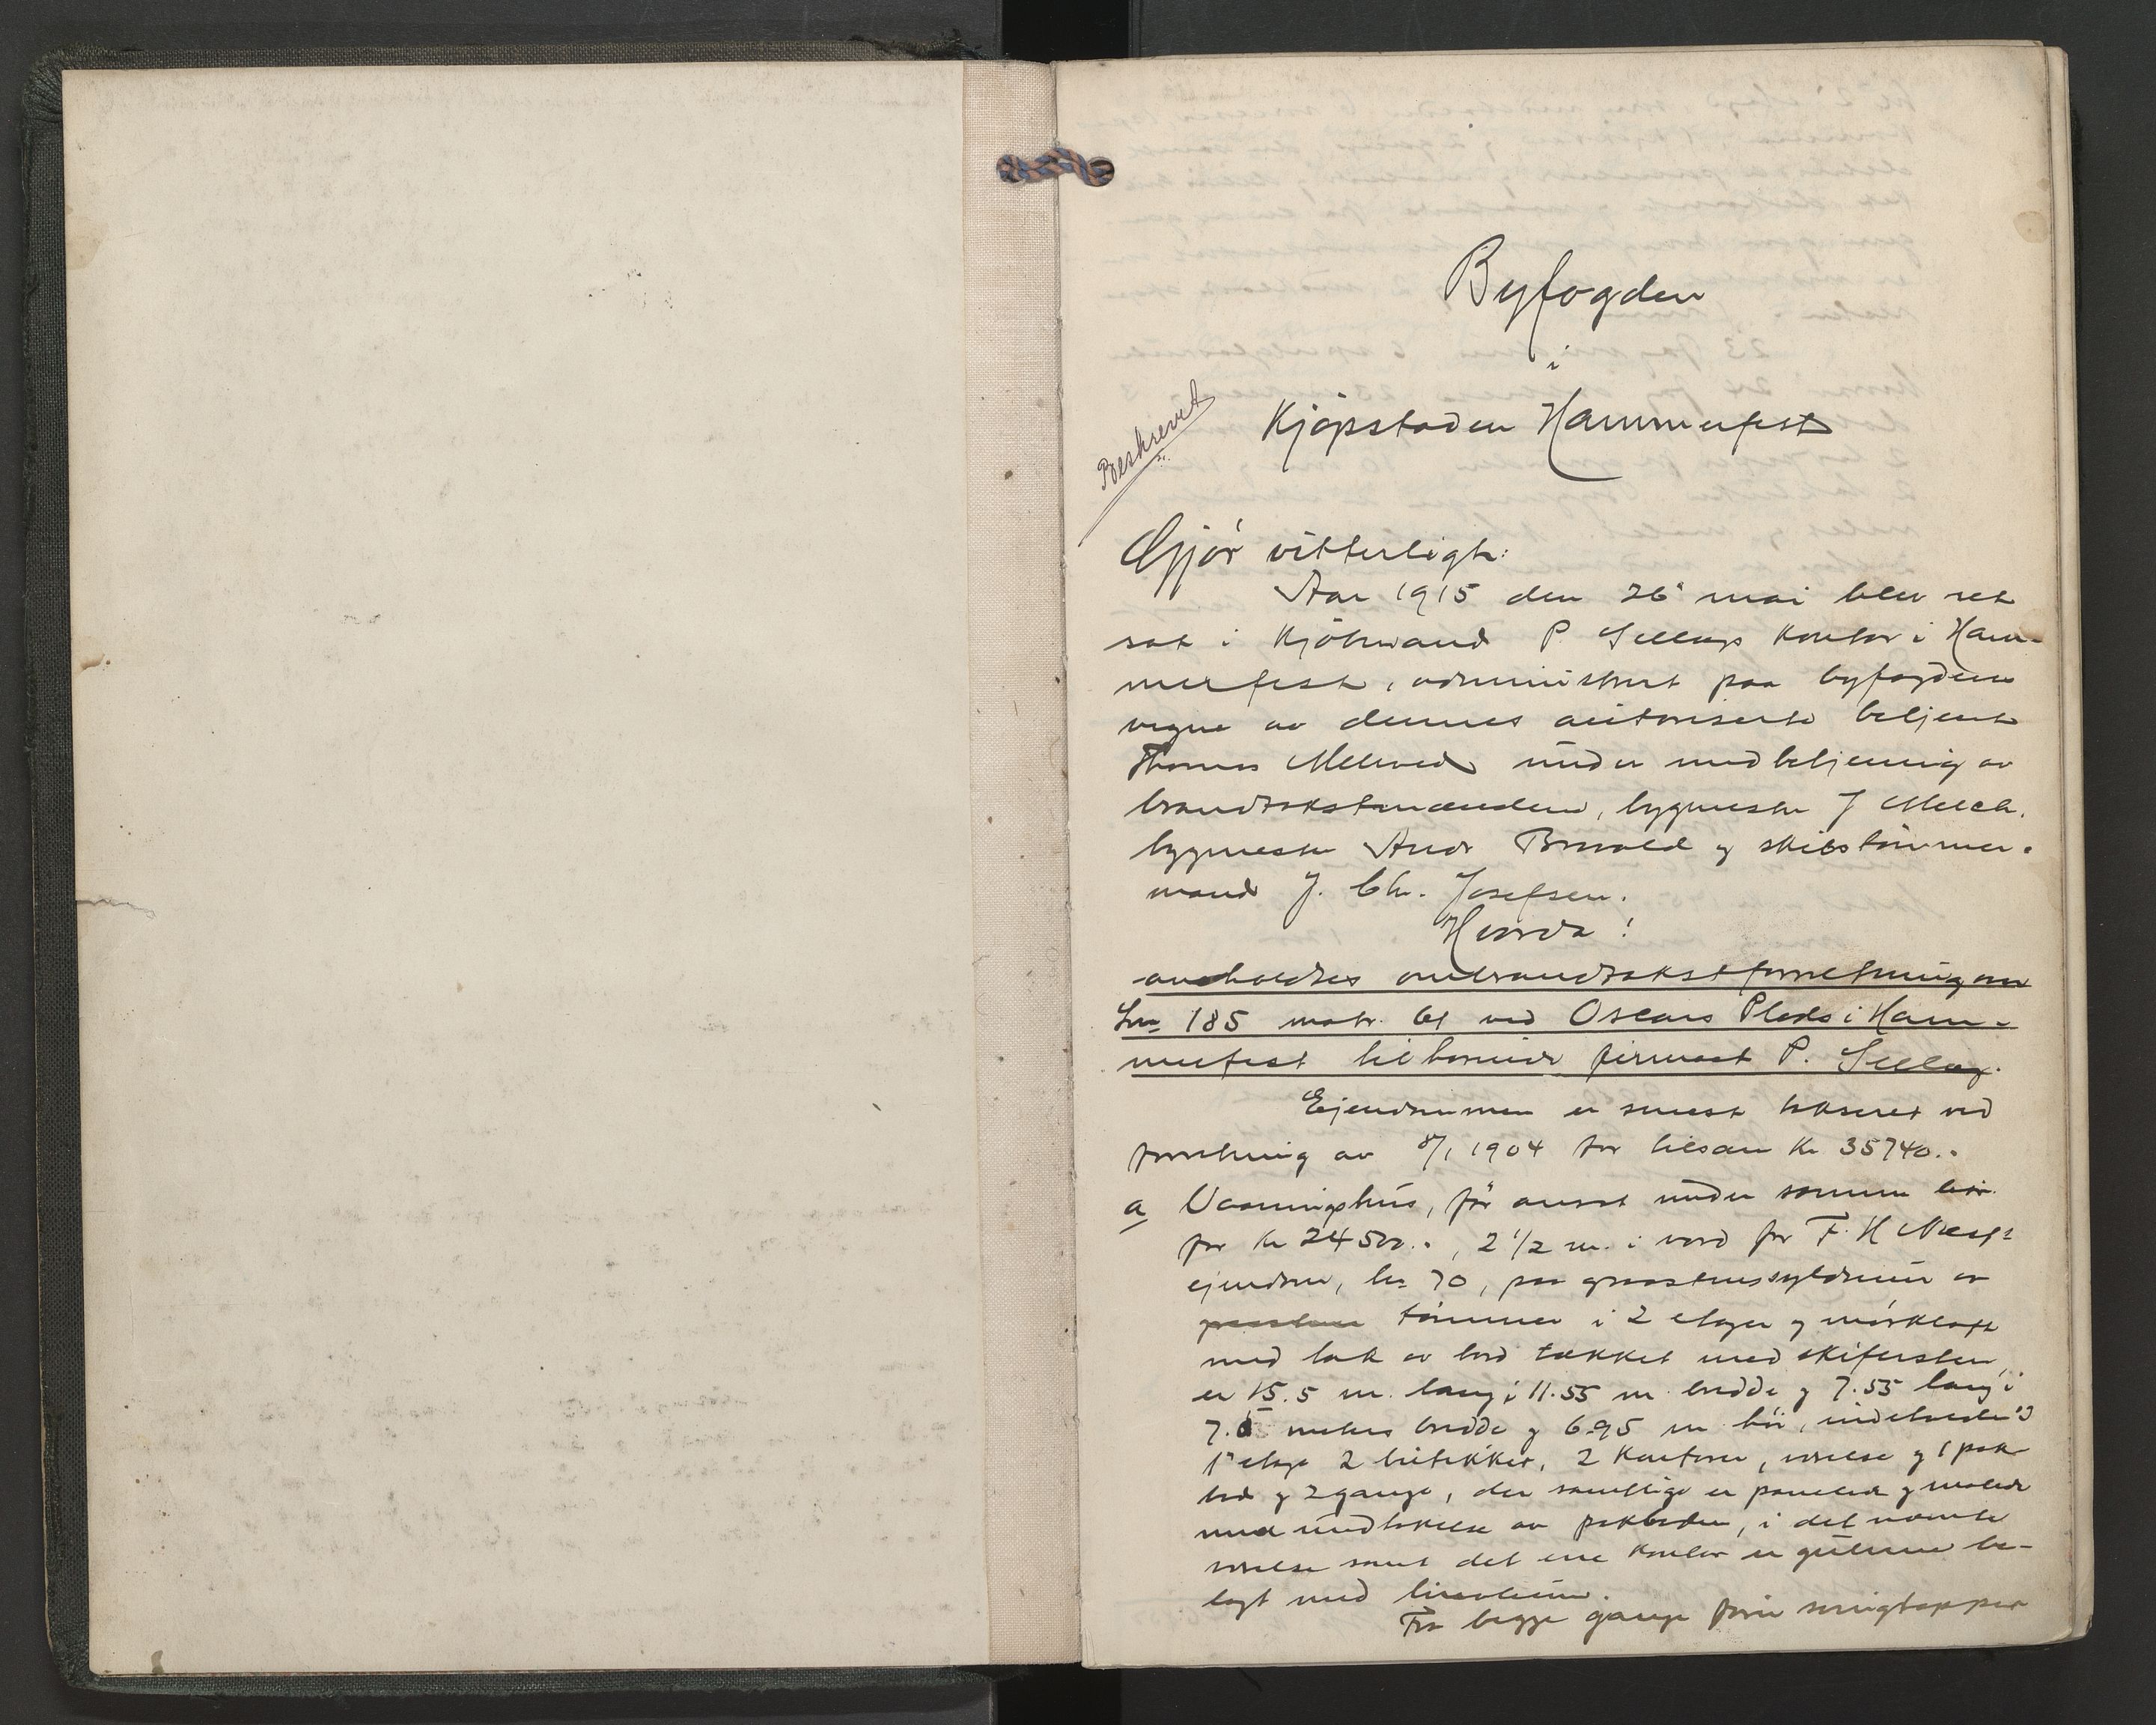 Byfogden
i
Kjøpstaden Hammerfest
Beskrevet
Gjør vitterligt:
Aar 1915 den 26' mai blev ret
sat i Kjøbmand P. kontor i Ham-
merfest, administrert paa byfogdens
vegne av dennes autoriserte betjent
Thomas under medbetjening av
brandtakstmændene, bygmester J
bygmester Andr og skibstømmer-
mand J. Chr. Josefsen.
Hvorda!
avholdtes ombrandtakstforretning over
Lnr 185 matr. 61 ved Oscars Plads i Ham-
merfest tilhørende firmaet P.
Eiendommen er senest taksert ved
forretning av 8/1 1904 for tilsam Kr 35740..
a Vaaningshus, før ansat under samme
for kr 2450.., 2 1/2 m. i nord for F. H
ejendom, lnr 70, paa graastenssyldmur av
tømmer i 2 etager og mørkloft
med tak av bord tækket med skifersten,
er 15.5 m. lang i 11.55 m bredde og 7.55 lang i
7. meters bredde og 6.95 m høi, indeholder i
1' etage 2 butikker, 2 kontorer, værelse og 1 pak-
bod og 2 gange, der samtlige er panelede og malede
med undtakelse av pakboden, i det nævnte
værelse samt det ene kontor er gulvene be-
lagt med linoleum.
Fra begge gange fører svingtrapper